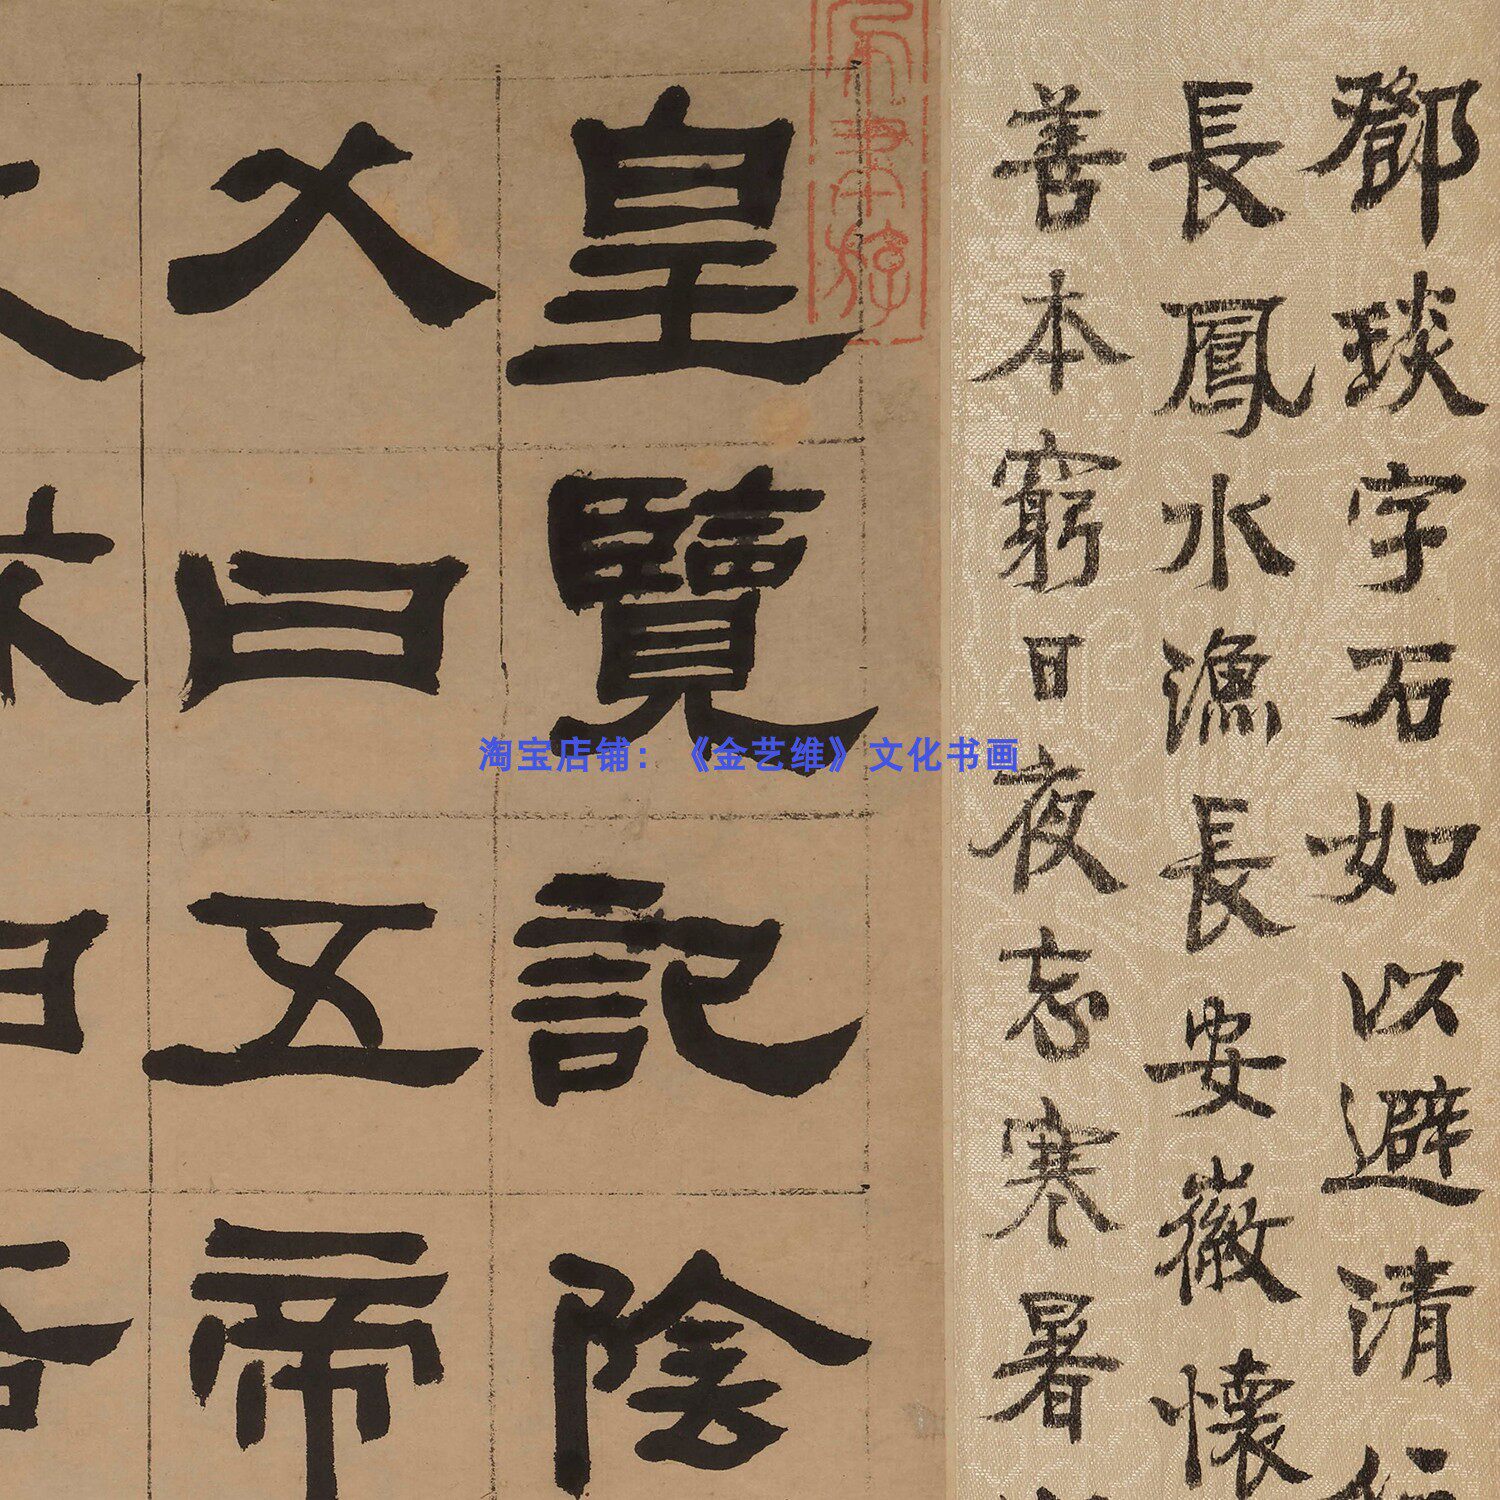 鄧琰字石如以避清
長鳳水漁長安徽懷
善本窮日夜忘寒暑
皇覽記陰
大曰五帝
淘宝店铺：《金艺维》文化书画